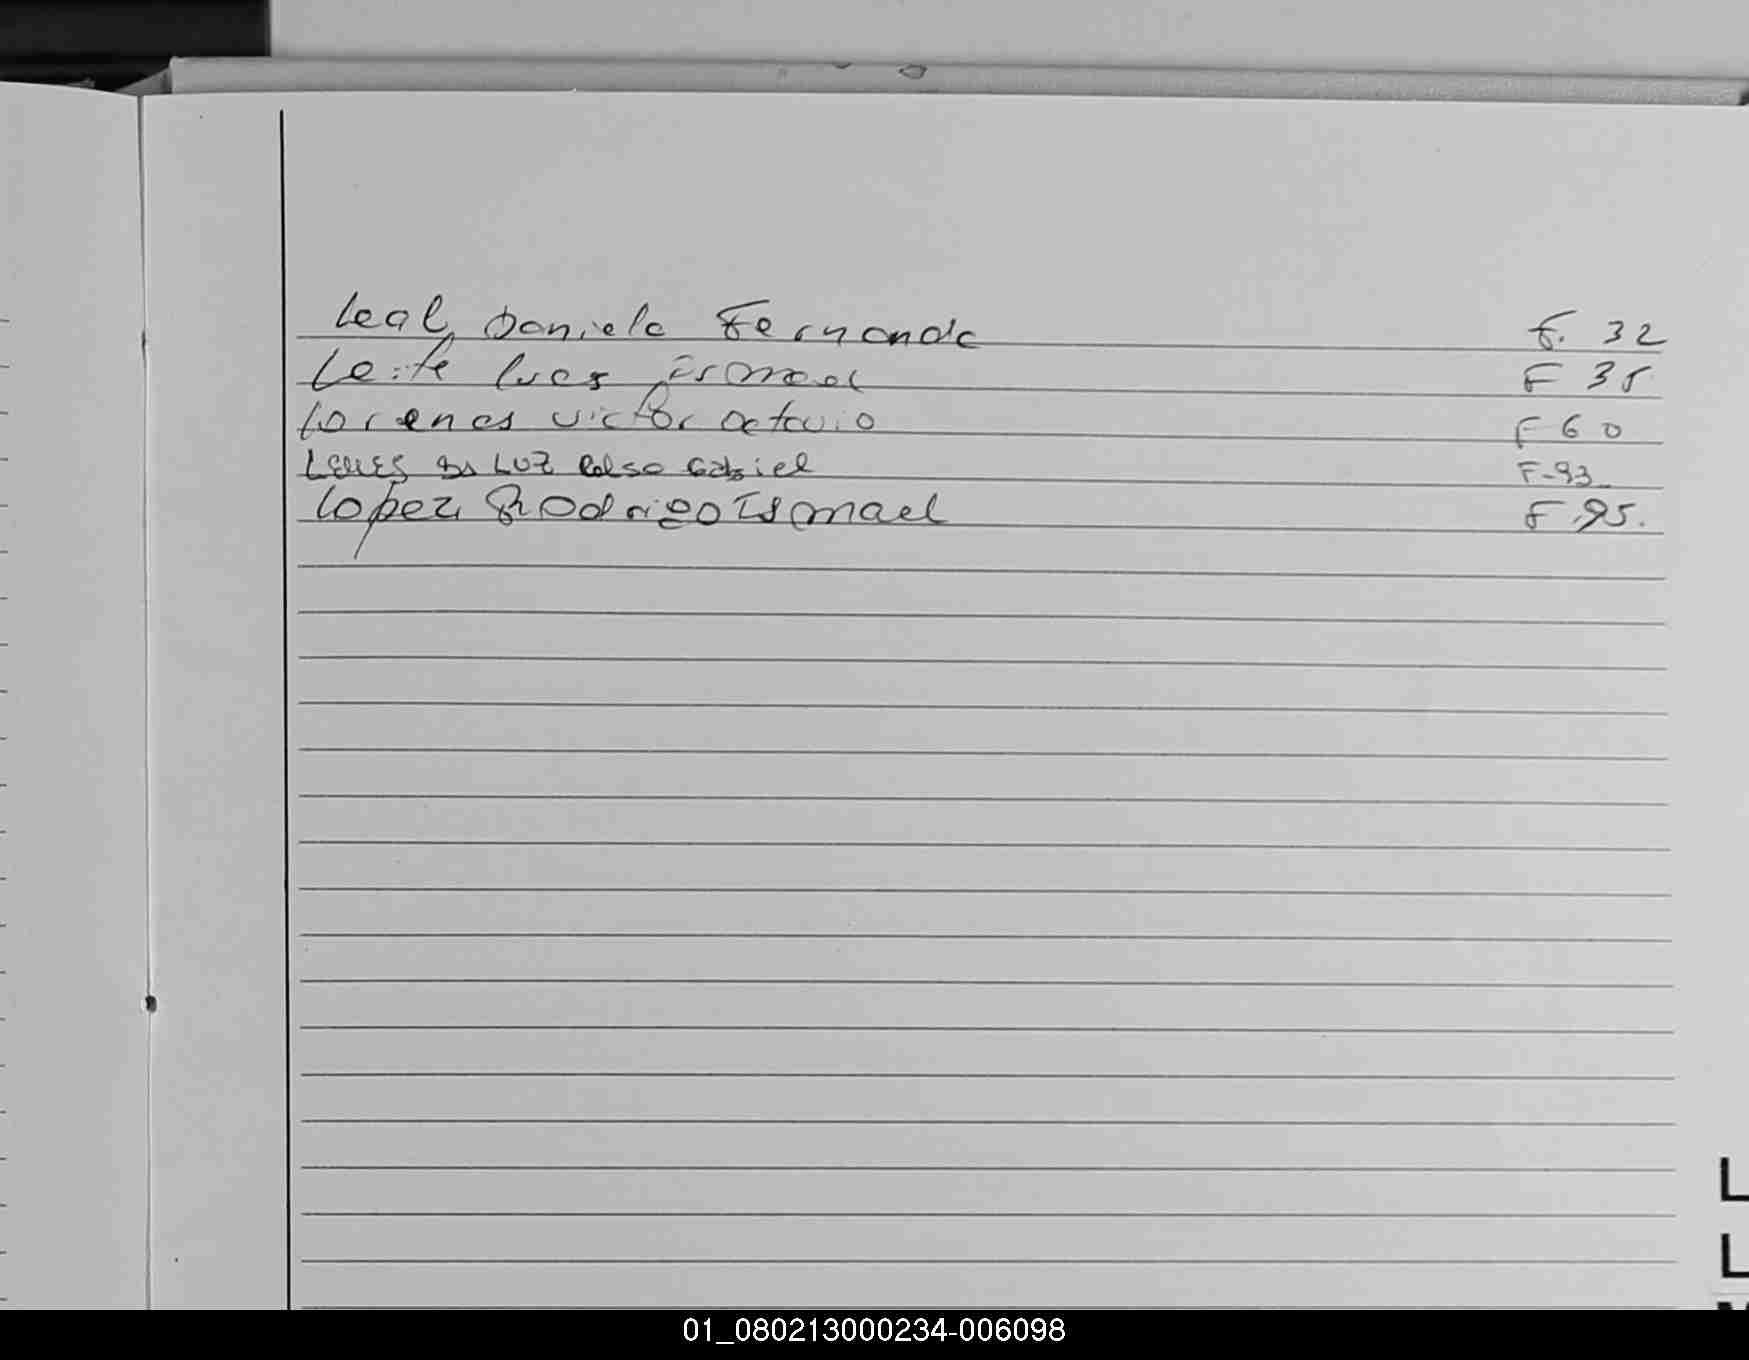 Leal, Daniela Fernanda F. 32
Leite Lucas Ismael F 35
Lorenes Victor Octavio F 60
LEMES DA LUZ Celso Gabriel F-93
Lopez, Rodrigo Ismael F 95.
L
L
01_080213000234-006098